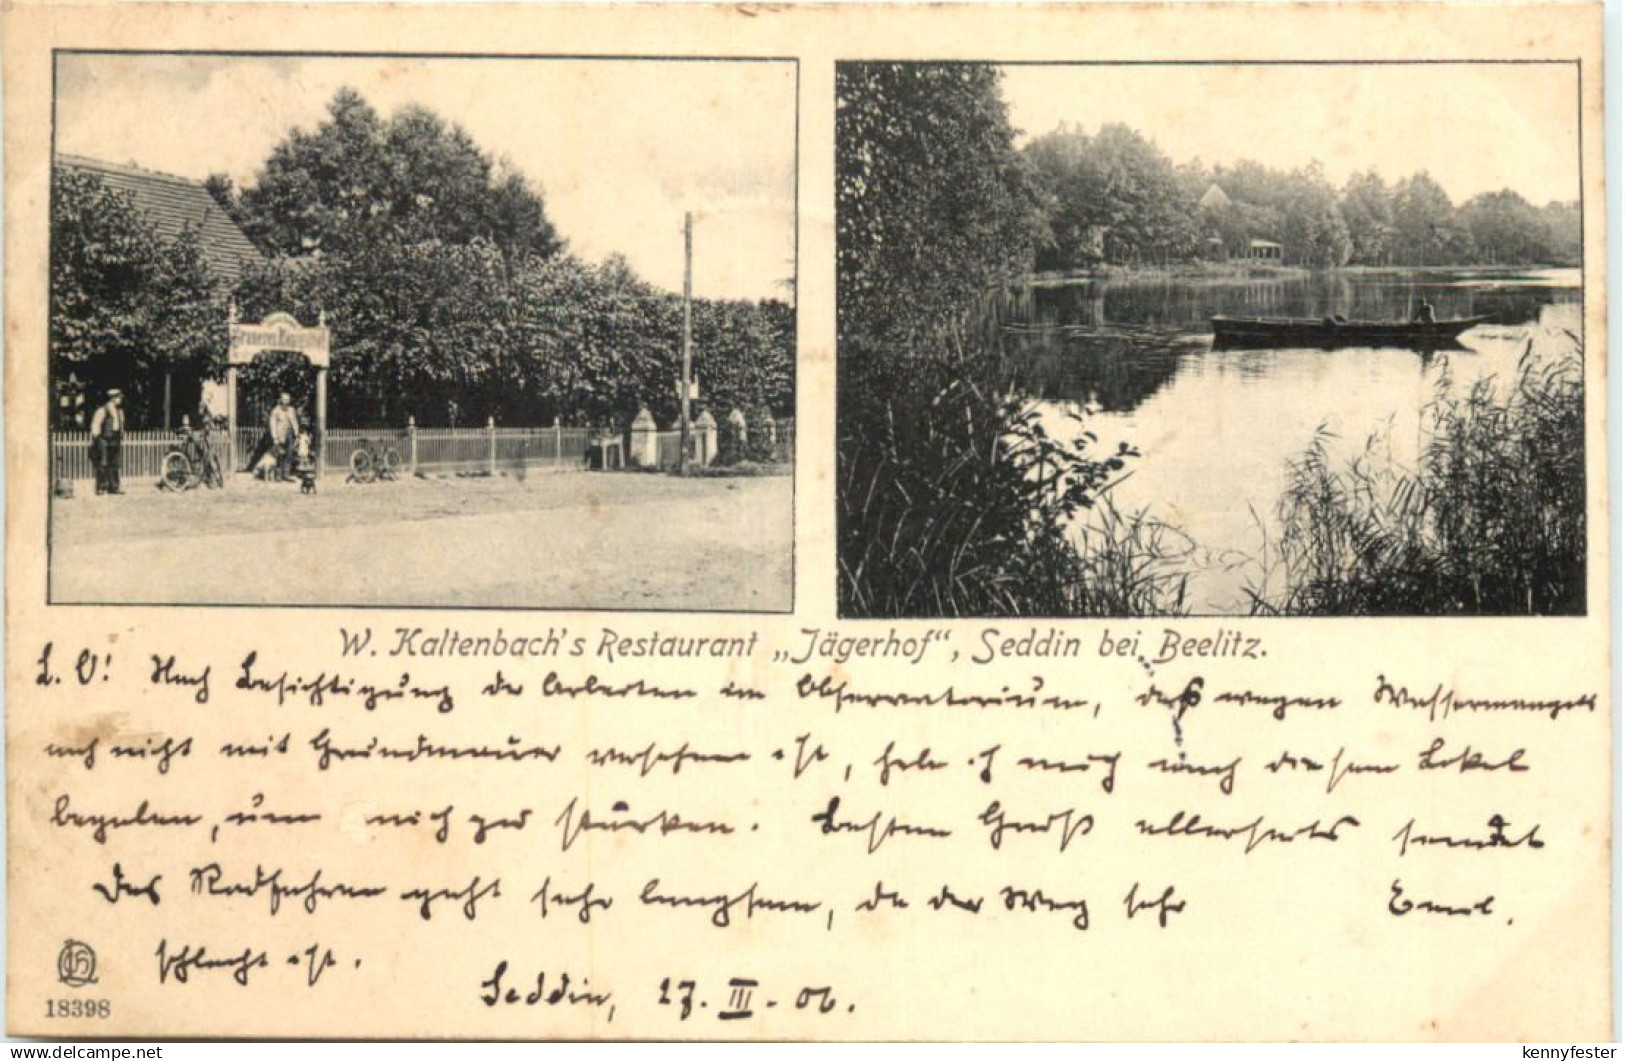 W. Kaltenbach's Restaurant „Jägerhof“, Seddin bei Beelitz.
L. O! Nach Besichtigung der Arbeiten im Observatorium, das wegen Wassermangels
noch nicht mit Grundmauer versehen ist, habe ich mich nach diesem Lokal
begeben, um mich zu stärken. Besten Gruß allerseits sendet
Das Radfahren geht sehr langsam, da der Weg sehr Emil.
schlecht ist.
Seddin, 27. III. 06.
18398
kennyfester
www.delcampe.net